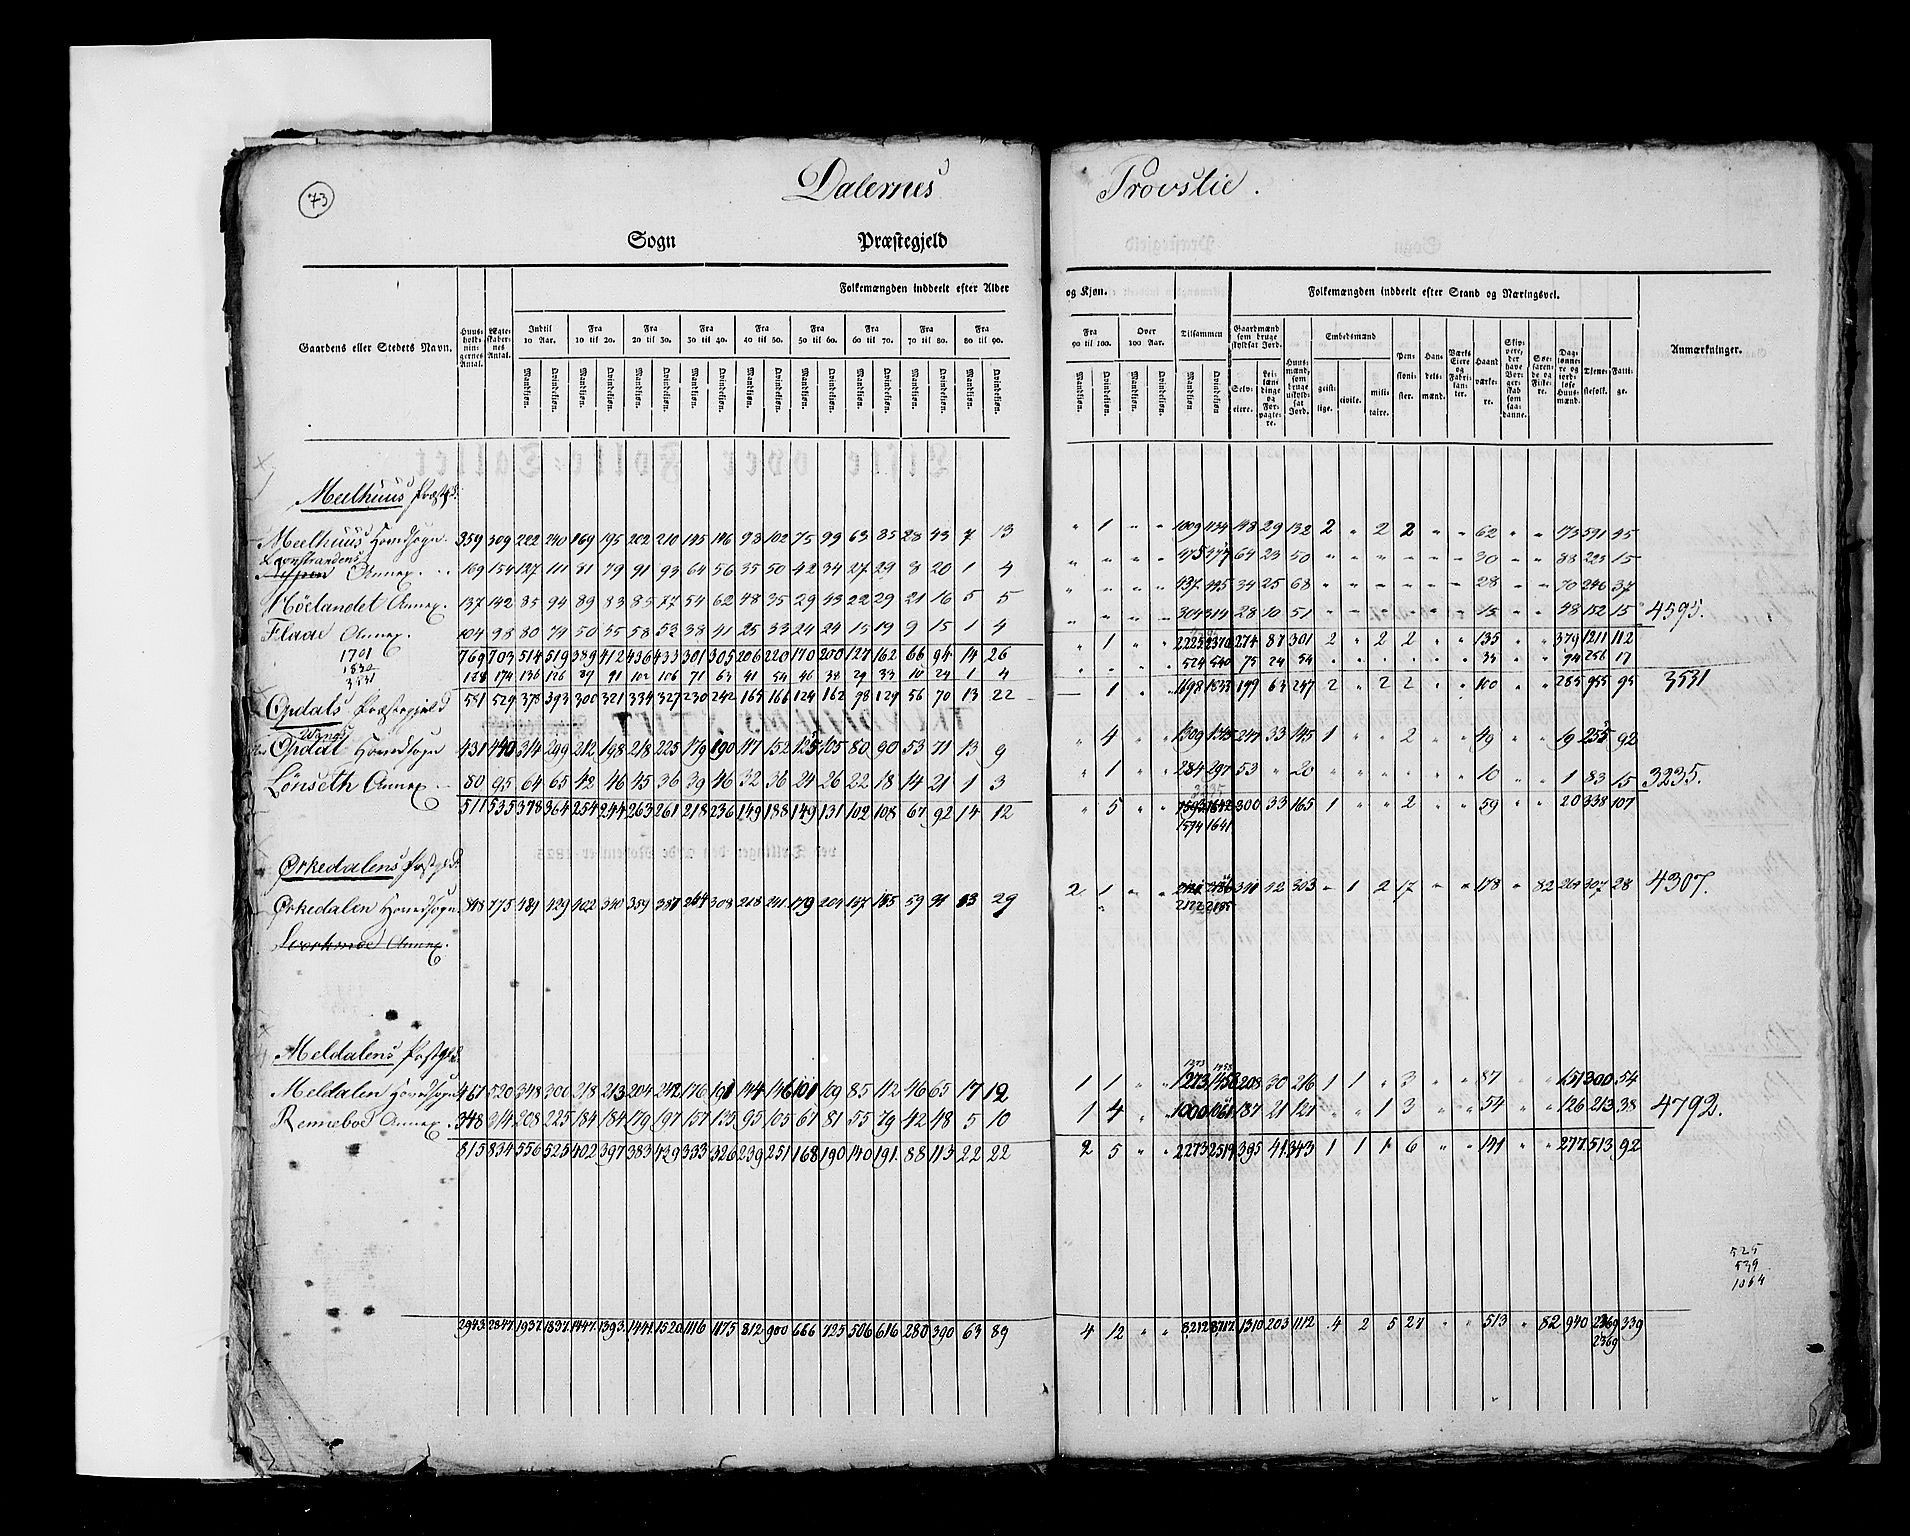 73
Dalernes Provstie.
Sogn Præstegjeld
Folkemængden inddeelt efter Alder og Kjøn.
Folkemængden inddeelt efter Stand og Næringsvei.
Gaardens eller Stedets Navn.
Huus-holdnin-gernes Antal.
Ægte-skaber-nes Antal.
Indtil 10 Aar.
Fra 10 til 20.
Fra 20 til 30.
Fra 30 til 40.
Fra 40 til 50.
Fra 50 til 60.
Fra 60 til 70.
Fra 70 til 80.
Fra 80 til 90.
Fra 90 til 100.
Over 100 Aar.
Tilsammen
Mandkiøn. Qvindekiøn.
Gaardmænd som bruge skyldsat Jord.
Selv-eiere.
Lei-lændinge og For-pagte-re.
Huus-mænd, som bruge uskyld-sat Jord.
Embedsmænd
geist-lige. civile. mili-taire.
Pen-sioni-ster.
Han-dels-mænd.
Værks Eiere og Fabri-kan-ter.
Haand værke-re.
Søe-farende og Fiske-re.
Dag-lønne-re og jord-løse Huus-mænd.
Tjene-stefolk.
Fatti-ge.
Anmærkninger.
Meelhuus Præstgd.
Meelhuus Hovedsogn. 359 309 222 240 169 195 202 210 145 146 93 102 75 99 63 85 28 43 7 13 " 1 " " 1009 1134 148 29 132 2 " 2 2 " " 62 " " 173 591 45
Leenstrandens Annex. 169 154 127 111 81 79 91 93 64 56 35 50 42 34 27 29 8 20 1 4 " " " " 475 477 64 23 50 " " " " " " 30 " " 88 223 15
Höelandet Annex. 137 142 85 94 89 83 85 77 54 62 48 35 29 43 22 29 21 16 5 5 " " " " 437 445 34 25 68 " " " " " " 28 " " 70 246 37
Flaae Annex. 104 98 80 74 50 55 58 53 38 41 25 33 24 24 15 19 9 15 1 4 " " " " 304 314 28 10 51 " " " " " " 15 " " 48 152 15 4595.
1701
1830
3531
769 703 514 519 389 412 436 433 301 305 206 220 170 200 127 162 66 94 14 26 " 1 " " 2225 2370 274 87 301 2 " 2 2 " " 135 " " 379 1211 112
128 174 136 126 89 91 102 106 71 63 41 54 46 38 29 33 10 24 1 4 524 540 75 24 54 35 94 256 17
551 529 378 393 300 321 334 327 230 242 165 166 124 162 98 129 56 70 13 22 1 1698 1833 199 63 247 2 " 2 2 " " 100 " " 285 955 95 3531
Opdals Præstegjeld
Opdal Hovedsogn 431 440 314 299 212 198 218 225 179 190 117 152 125 105 80 90 53 71 13 9 " 4 " " 1309 1345 247 33 145 1 " " 2 " " 49 " " 19 255 92
Lönseth Annex 80 95 64 65 42 46 45 36 39 46 32 36 24 26 22 18 14 21 1 3 " 1 " " 284 297 53 " 20 " " " " " " 10 " " 1 83 15 3235.
511 535 378 364 254 244 263 261 218 236 149 188 149 131 102 108 67 92 14 12 " 5 " " 1593 1642 300 33 165 1 " " 2 " " 59 " " 20 338 107
1594 1641
Ørkedalens Pastgjeld
Ørkedalen Hovedsogn 848 775 489 429 402 340 359 387 264 308 218 241 179 204 137 155 59 91 13 29 2 1 " " 2121 2186 341 42 303 " 1 2 17 " " 178 " 82 264 307 28 4307.
2122 2185
Meldalens Pastgjeld
1273 1458
Meldalen Hovedsogn 467 520 348 300 218 213 204 242 176 191 144 146 101 109 85 112 46 65 17 12 1 1 " " 1273 1458 208 20 216 1 1 " 3 " " 87 " " 151 300 54
Renneboe Annex. 348 314 208 225 184 184 179 197 157 135 95 105 67 81 55 79 42 48 5 10 1 4 " " 1000 1061 187 21 127 " " 1 3 " " 54 " " 126 213 38 4792.
815 834 556 525 402 397 383 439 333 326 239 251 168 190 140 191 88 113 22 22 2 5 " " 2273 2519 395 41 343 1 1 1 6 " " 141 " " 277 513 92
525
539
1064
2943 2847 1937 1837 1447 1393 1441 1520 1116 1175 812 900 666 725 506 616 280 390 63 89 4 12 " " 8212 8717 1310 203 1112 4 2 5 27 " " 513 " 82 940 2369 339
2369